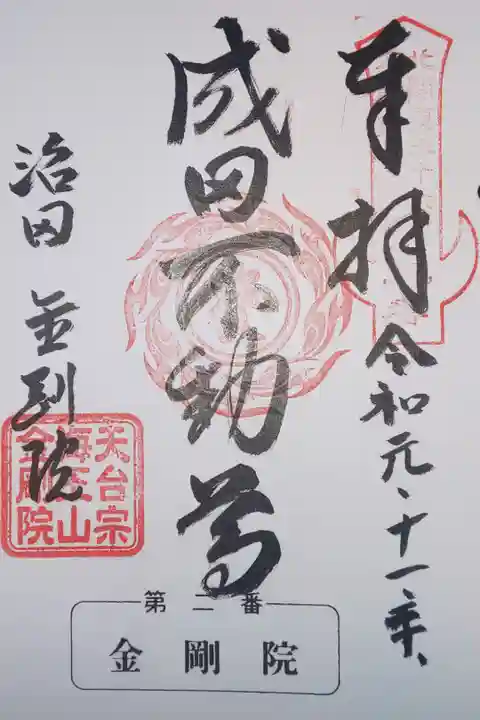 奉拝
令和元、十一、
成田不動尊
沼田 金剛院
天台宗
海王山
金剛院
第二番
金剛院